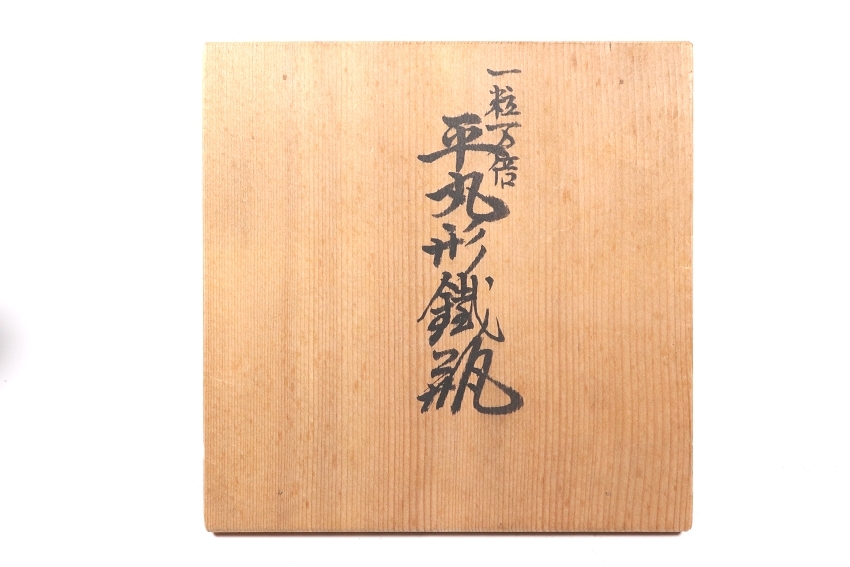 一粒万倍
平丸形鐵瓶